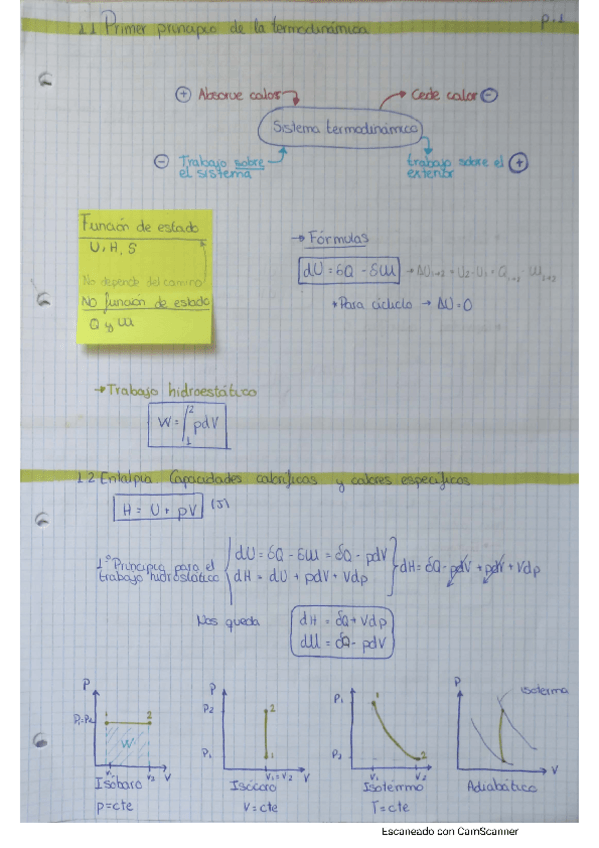 1.1 Primer principio de la termodinámica p.1
⊕ Absorve calor Cede calor ⊖
Sistema termodinámico
⊖ Trabajo sobre el sistema
trabajo sobre el exterior ⊕
Función de estado
U, H, S
No depende del camino
NO función de estado
Q y W
→ Fórmulas
dU = δQ - δW → ΔU₁→₂ = U₂ - U₁ = Q₁→₂ - W₁→₂
* Para cíclico → ΔU = 0
→ Trabajo hidroestático
W = ∫₁² pdV
1.2 Entalpía. Capacidades caloríficas y calores específicos
H = U + pV (J)
1º Principio para el trabajo hidrostático
dU = δQ - δW = δQ - pdV
dH = dU + pdV + Vdp
dH = δQ - pdV + pdV + Vdp
Nos queda
dH = δQ + Vdp
dU = δQ - pdV
P
P₁=P₂
1 2
W
V₁ V₂ V
Isóbaro
p=cte
P
P₂
2
P₁
1
V₁=V₂ V
Isócoro
V=cte
P₁
1
P₂
2
V₁ V₂
Isotermo
T=cte
P
isoterma
V
Adiabático
Escaneado con CamScanner